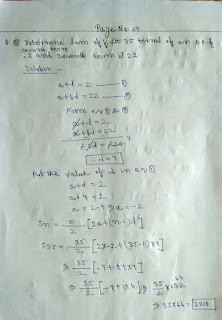 Page No: 29
Q. Determine sum of first 35 terms of an A.P. if
second term
2 and seventh term is 22
Solution :-
a+d = 2 — ①
a+6d = 22 — ②
From eq ① & ②
a+d = 2
a+6d = 22
∴ d = 4
Put the value of d in eq ①
a+d = 2
a+4 = 2
a = 2-4 ⇒ a = -2
Sn = n/2 [2a+(n-1)d]
S35 = 35/2 [2x-2+(35-1)x4]
⇒ 35/2 [-4+34x4]
⇒ 35/2 [-4+136] ⇒ 35/2 x132 66
⇒ 35x66 = 2310